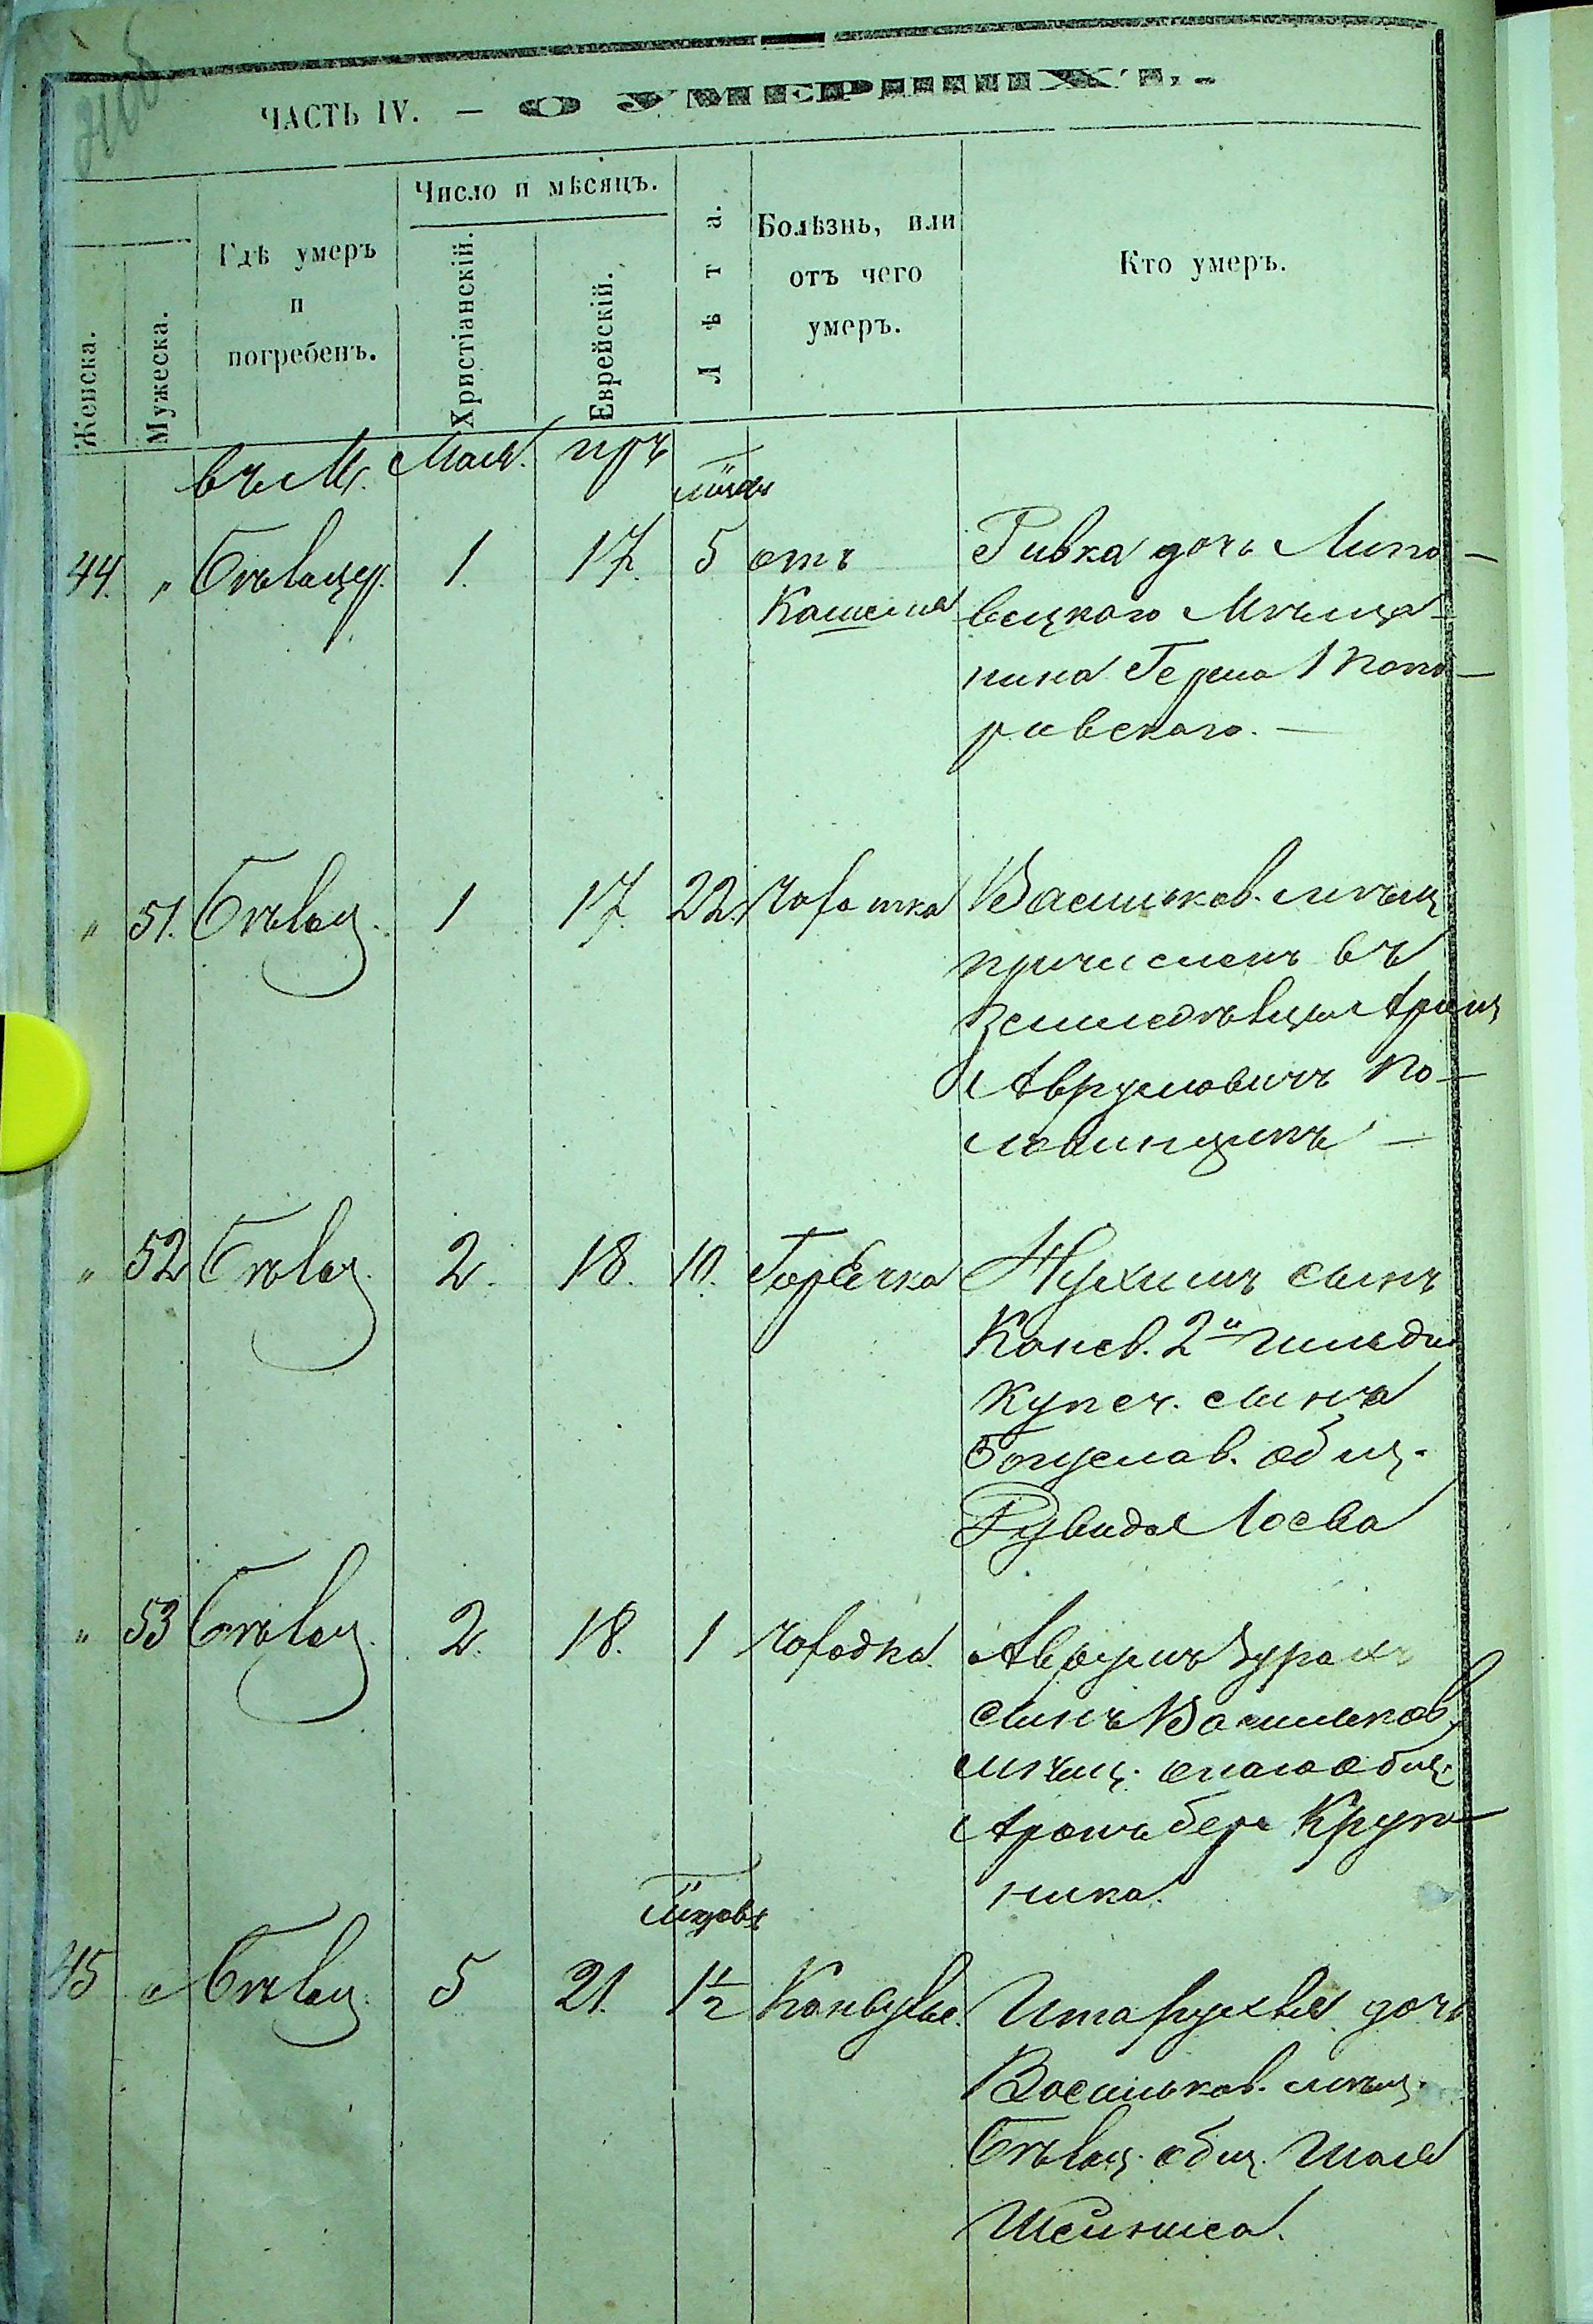 ЧАСТЬ IV. — О УМЕРШИХЪ.
Женска.
Мужеска.
Гдѣ умеръ
и
погребенъ.
Число и мѣсяцъ.
Христіанскій.
Еврейскій.
Лѣта.
Болѣзнь, или
отъ чего
умеръ.
Кто умеръ.
въ М. Мая.
44. " Бѣлоцер. 1. 17. 5 отъ Ривка дочь Липо-
Кашеля вецкаго Мѣща-
нина Герша
ривскаго. —
" 51. Бѣлоц. 1 17. 22 Васильков. мѣщ
причислен въ
земледѣльцы
Аврумовичъ По-
ловинщикъ —
" 52 Бѣлоц. 2. 18. 10. Горячка Нухимъ сынъ
Канев. 2й гильди
Купеч. сына
Богуслав. общ.
Рувида
" 53 Бѣлоц. 2. 18. 1 Аврумъ
сынъ Васильков.
мѣщ. общ.
Аронъ бера Круп-
ника.
45 " Бѣлоц. 5 21. 1½ Конвульс. дочь
Васильков. мѣщ.
Бѣлоц. общ. Шая
Шейниса.